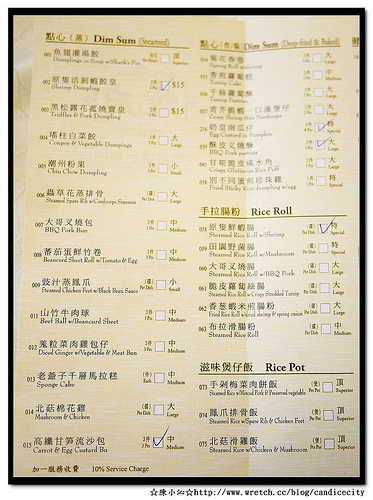 點心（蒸）Dim Sum (Steamed)
001 魚翅灌湯餃
Dumplings in Soup w/Shark's Fin
頂 Superior
002 原隻活剝蝦餃皇 $15
Shrimp Dumpling
003 黑松露花菰燒賣皇 $15
Truffles & Pork Dumpling
004 瑤柱白菜餃 大
Conpoy & Vegetable Dumpings Large
005 潮州粉果 小
Chiu Chow Dumpling Small
006 蟲草花蒸排骨 大
Steamed Spare Rib w/Cordyceps Sinensis Large
007 大哥叉燒包 中
BBQ Pork Bun Medium
008 蕃茄蛋鮮竹卷 中
Beancurd Sheet Roll w/Tomato & Egg Medium
009 豉汁蒸鳳爪 小
Steamed Chicken Feet w/Black Bean Sauce Small
011 山竹牛肉球 中
Beef Ball w/Beancurd Sheet Medium
012 菜肉雞包仔 中
Diced Ginger w/Vegetable & Meat Bun Medium
013 老爺子千層馬拉糕 中
Sponge Cake Each Medium
014 北菇棉花雞 大
Mushroom & Chicken Large
015 高纖甘笋流沙包 中
Carrot & Egg Custard Bu Medium
加一服務收費 10% Service Charge
Dim Sum (Deep-fried & Baked)
菊花春卷 大
Large
香煎蘿蔔糕 中
Medium
千絲蘿蔔酥 大
Large
一口漢堡仔 大
Large
奶皇南瓜仔 特
Egg Custard in Pumpkin Special
酥皮叉燒酥 大
BBQ Pork pastries Large
脆皮咸水角 大
Crispy Glutinous Rice Puff Large
別不同蛋煎珍珠雞 特
Fried Sticky Rice dumpling w/egg Special
手拉腸粉 Rice Roll
058 原隻鮮蝦腸 特
Steamed Rice Roll w/Shrimp Special
059 田園野菌腸 特
Steamed Rice Roll w/Mushroom Special
060 大哥叉燒腸 大
Steamed Rice Roll w/BBQ Pork Large
061 脆皮蘿蔔絲腸 大
Steamed Rice Roll w/Crispy Shredded Turnip Large
062 香蔥蝦米煎腸粉 大
Fried Rice Roll w/dried shrimp & spring onion Large
063 布拉滑腸粉 中
Steamed Rice Roll Medium
滋味煲仔飯 Rice Pot
073 手剁梅菜肉餅飯 頂
Steamed Rice w/Minced Pork & Preserved-vegetable Superior
074 鳳爪排骨飯 頂
Steamed Rice w/Spare Rib & Chicken Feet Superior
075 北菇滑雞飯 頂
Steamed Rice w/Chicken & Mushroom Superior
☆陳小沁☆http://www.wretch.cc/blog/candicecity